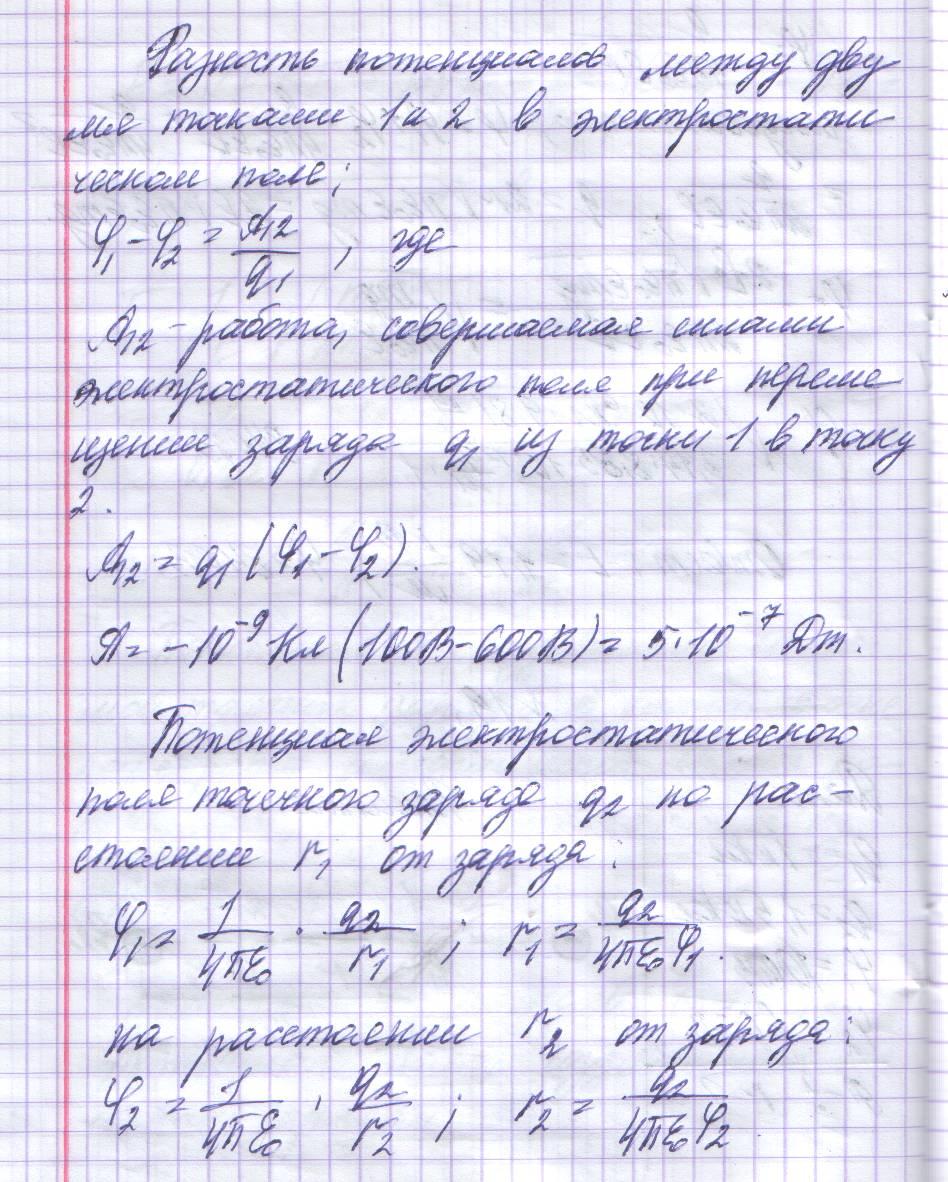 Разность потенциалов между дву
мя точками 1 и 2 в электростати
ческом поле;
φ₁ - φ₂ = A₁₂/q₁ , где
A₁₂ - работа, совершаемая силами
электростатического поля при переме
щении заряда q₁ из точки 1 в точку
2.
A₁₂ = q₁ (φ₁ - φ₂).
A = -10⁻⁹ Кл (100В - 600В) = 5·10⁻⁷ Дж.
Потенциал электростатического
поля точечного заряда q₂ на рас-
стоянии r₁ от заряда.
φ₁ = 1/4πε₀ · q₂/r₁ ; r₁ = q₂/4πε₀φ₁.
на расстоянии r₂ от заряда:
φ₂ = 1/4πε₀ · q₂/r₂ ; r₂ = q₂/4πε₀φ₂